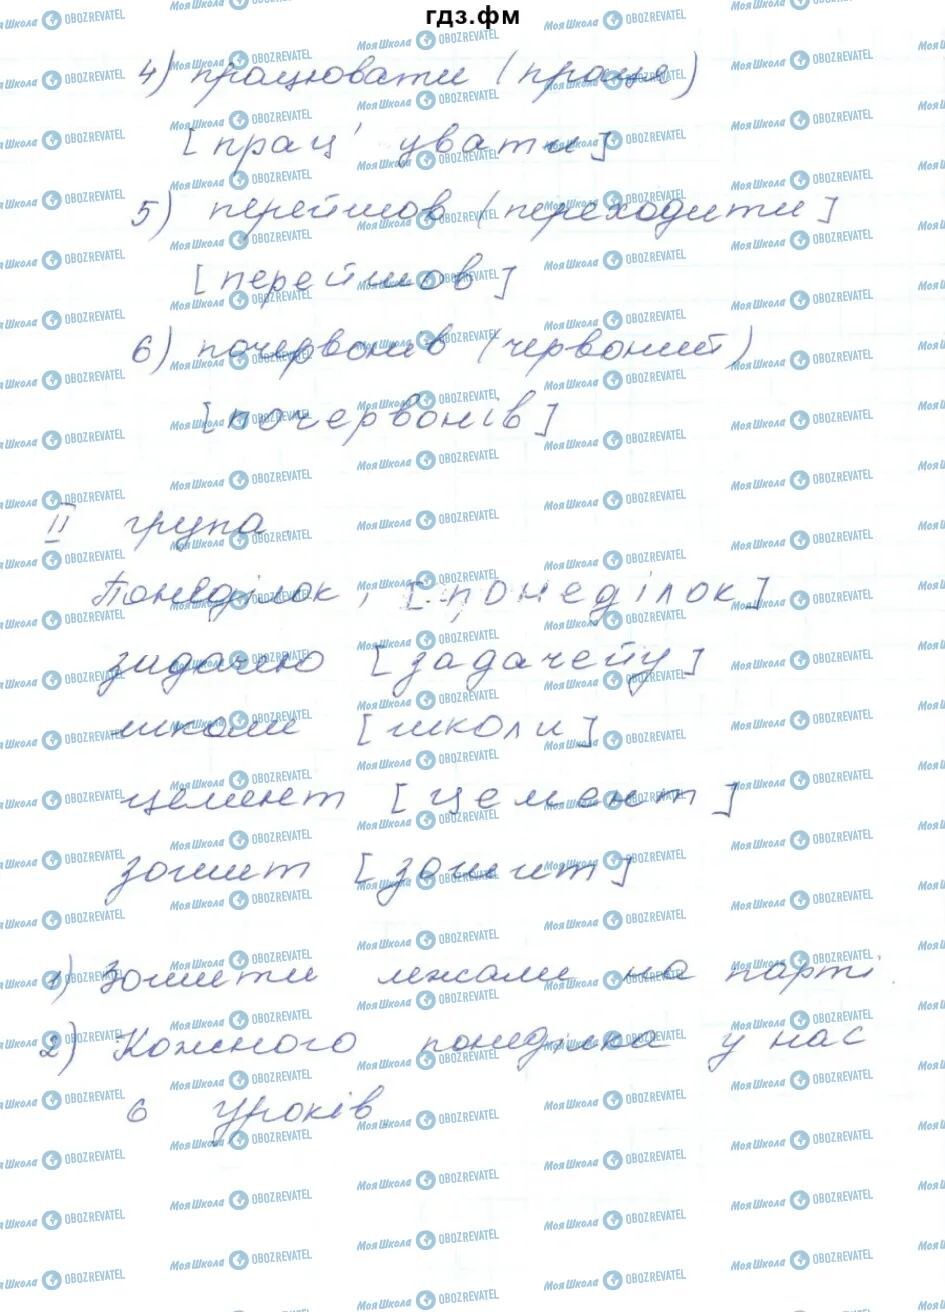 гдз.фм
4) працювати (праця)
[прац' увати]
5) перейшов (переходити]
[перейшов]
6) почервонів (червоний)
[почервонів]
II група
Понеділок, [понеділок]
задачею [задачейу]
школи [школи]
цемент [цемент]
зошит [зошит]
1) Зошити лежали на парті.
2) Кожного понеділка у нас
6 уроків.
МояШкола OBOZREVATEL